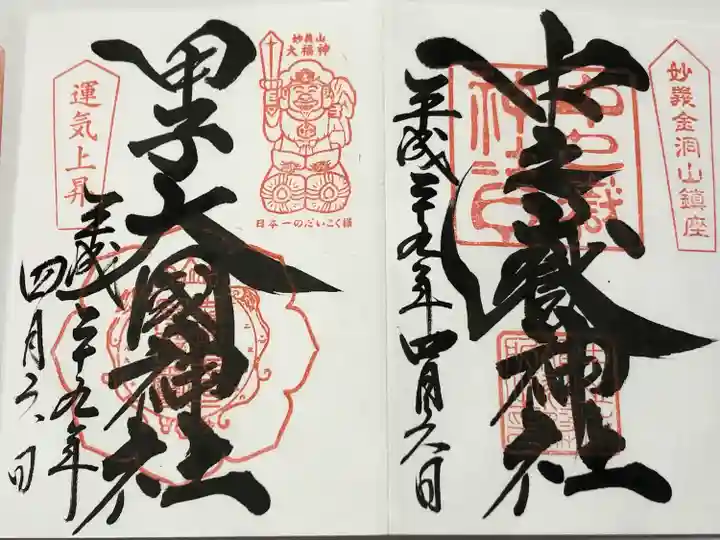 妙義金洞山鎮座
中之嶽神社
中之嶽神社
平成二十九年四月六日
妙義山
大福神
日本一のだいこく様
甲子大國神社
運気上昇
平成二十九年
四月六日